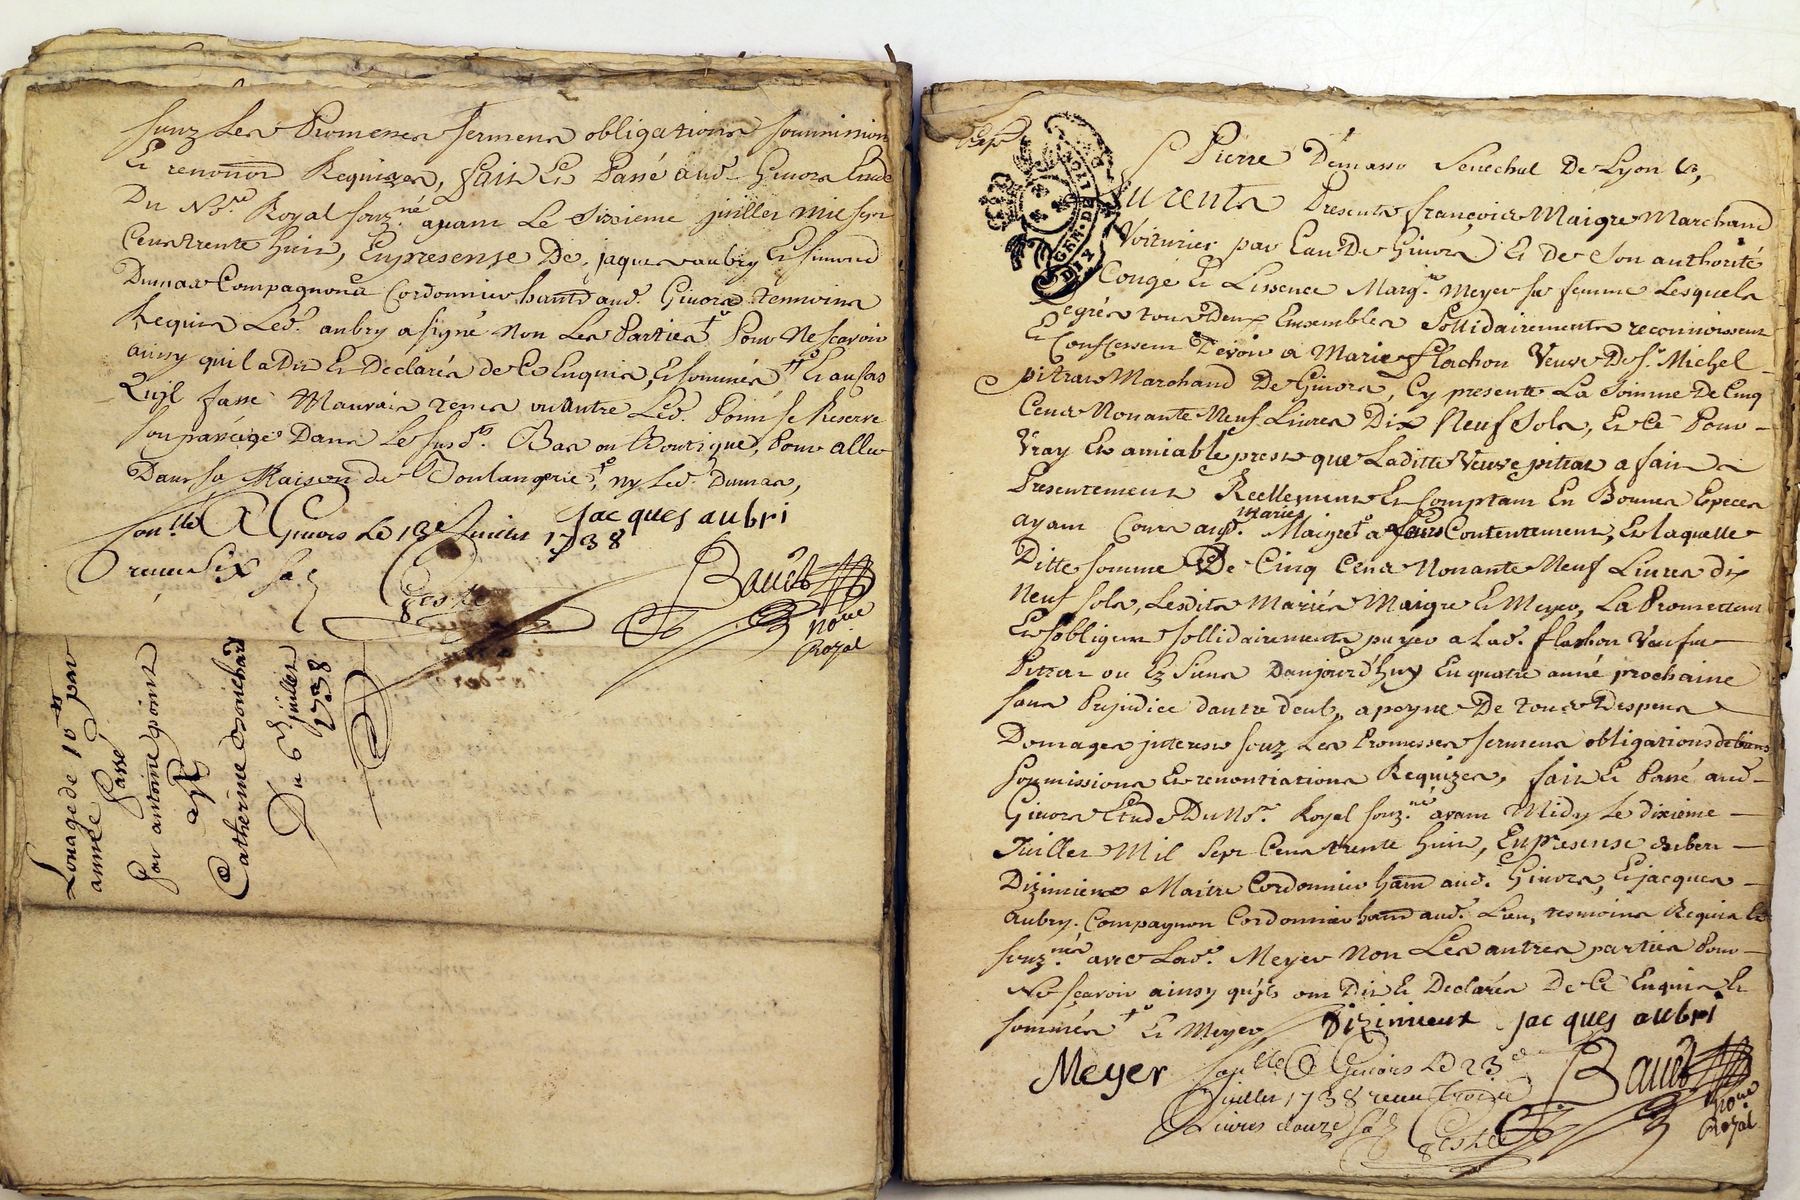 souz les Promesses sermens obligations soumission
Et renonon Requizes, fait Et Passé aud. Givors Etude
Du Nore. Royal souz.né avant Le Sixieme juillet mil sept
Cens trente huit, En presense De jaques aubry Et simond
Dumas Compagnons Cordonnier hants aud. Givors temoins
Requis Led. aubry a signé non Les Parties Pour Ne scavoir
ainsy quil a Dit Et Declarés de Ce Enquis, Et sommés Et au Cas
Quil fasse Mauvais tems ou autre Led. Point se Reserve
son passage Dans Le susd. Bas ou Boutique, Pour aller
Dans sa Maison de Boulangerie, ny Led. Dumas,
jacques aubri
Conlle A Givors Le 13e Juillet 1738
receu six s.
Bauët
Nore
Royal
Louage de 10 ## par
année Passé
Par antoine point
a
Catherine Bonichard
Du 6e juillet
1738
GEN. DE LYON
DIX
Pierre Démaso Senechal De Lyon &,
furents Presents françois Maigre Marchand
Voiturier par Eau De Givors Et De Son authorité
Congé Et Lissence Marg.te Meyer sa femme Lesquels
egrés tous Deux Ensembles Sollidairements reconnoissent
Et Confessent Devoir a Marie flachon Veuve De Sr. Michel
pitrat Marchand De Givors, Cy presente La Somme De Cinq
Cens Nonante Neuf Livres Dix Neuf Sols, Et Ce Pour
Vray Et amiable prest que Laditte Veuve pitrat a fait
Presentement Reellement Et Comptant En Bonnes Especes
ayant Cours aud. mariés Maigre a leurs Contentement, Et laquelle
Ditte somme De Cinq Cens Nonante Neuf Livres dix
Neuf sols, Lesdits Mariés Maigre Et Meyer, La Promettent
Et sobligent sollidairements payer a Lad. flachon Veufve
Pitrat ou Ez Siens Daujourd'huy En quatre anné prochaine
sans Prejudice dautre deub, a peyne De tous Despens
Domages jnterest souz Les Promesses sermens obligations de biens
soumissions Et renontiations Requizes, fait Et Passé aud.
Givors Etude Du No.re Royal souz.né avant Midy Le dixieme
Juillet Mil Sept Cens trente huit, En presense
Dizimieux Maitre Cordonnier hant aud. Givors, Et jacques
aubry Compagnon Cordonnier hant aud. Lieu, tesmoins Requis Et
souz.nés avec Lad. Meyer Non Les autres parties Pour
Ne sçavoir ainsy quils ont Dit Et Declarés De Ce Enquis Et
sommés Et Meyer Dizimieux jacques aubri
Meyer
Conlle A Givors Le 23e
Juillet 1738 receu trois
Livres douze s.
Bauët
Nore
Royal